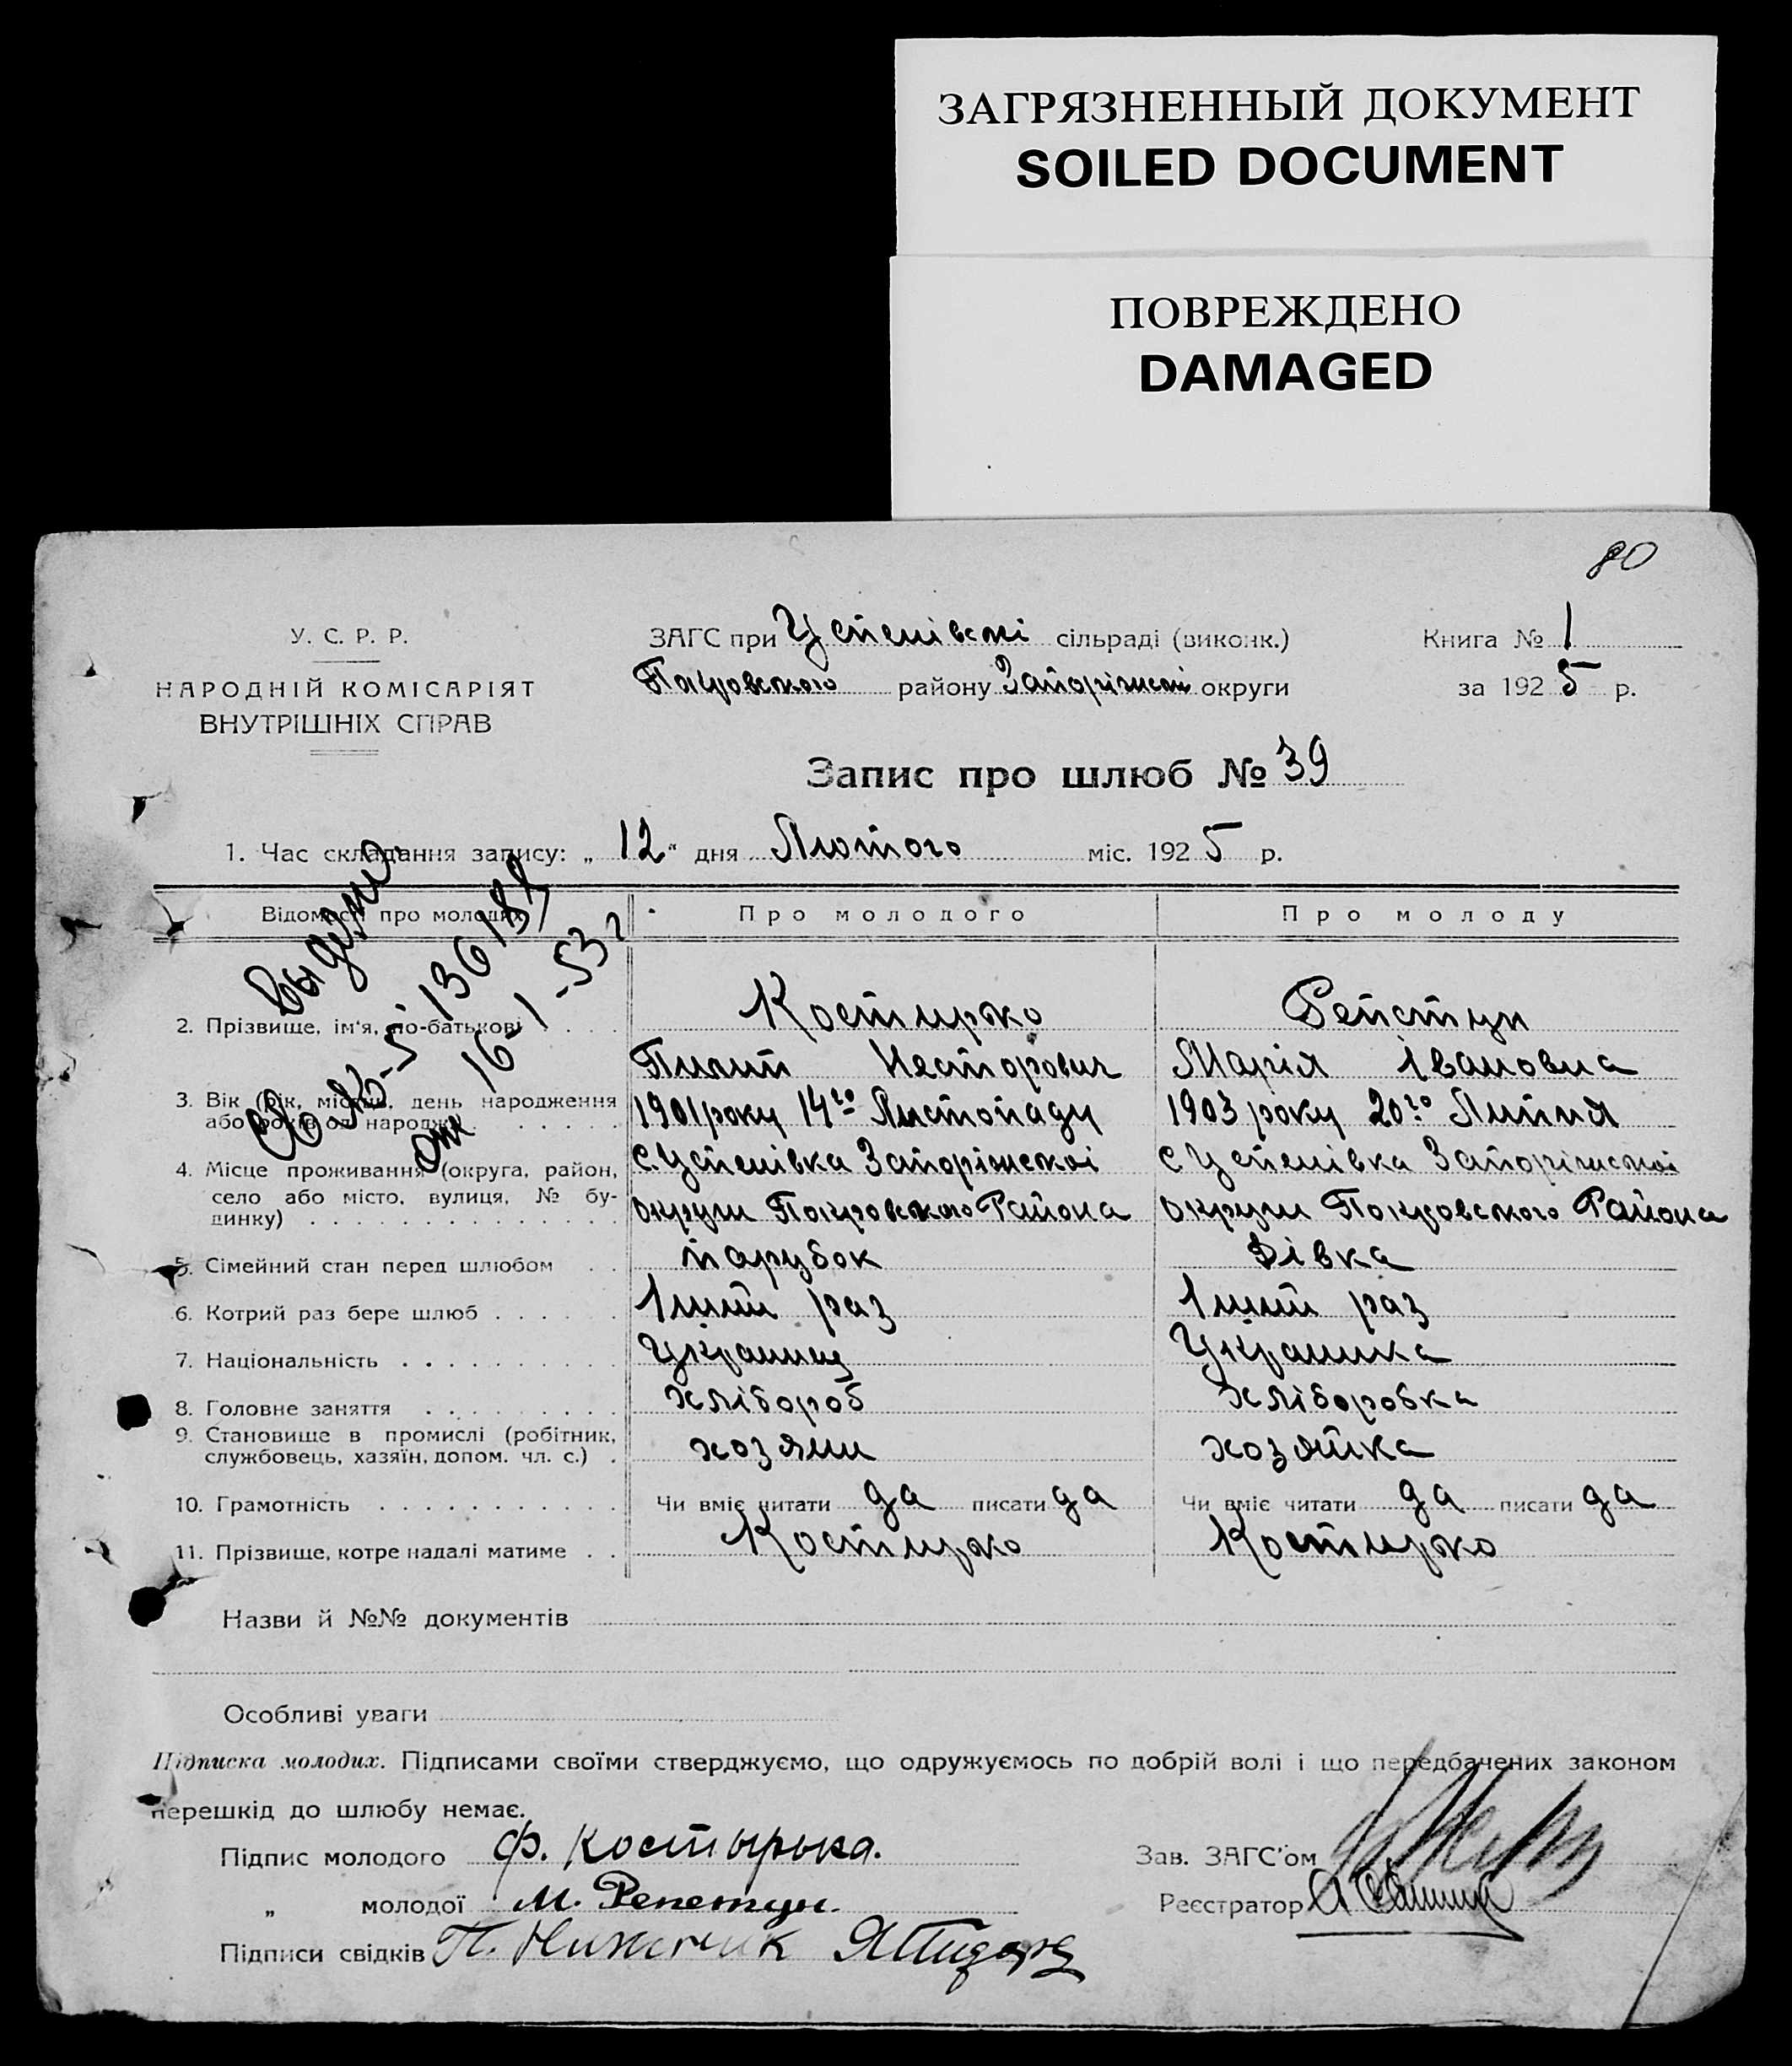 ЗАГРЯЗНЕННЫЙ ДОКУМЕНТ
SOILED DOCUMENT
ПОВРЕЖДЕНО
DAMAGED
80
У. С. Р. Р.
НАРОДНІЙ КОМІСАРІЯТ
ВНУТРІШНІХ СПРАВ
ЗАГС при Успенівскі сільраді (виконк.)
Покровського району Запоріжскоі округи
Книга № 1
за 1925 р.
Запис про шлюб № 39
1. Час складання запису: „12" дня Лютого міс. 1925 р.
Відомості про молодих
Про молодого
Про молоду
Выдано
Св. 136187
от 16-1-53 г
2. Прізвище, ім'я, по-батькові . . . .
Костирко
Репетун
Пилип Несторович
Марія Івановна
3. Вік (рік, місяць, день народження
або років од народж.) . . . . .
1901 року 14го Листопаду
1903 року 20го Липня
4. Місце проживання (округа, район,
село або місто, вулиця, № бу-
динку) . . . . . . . . . . . . .
с. Успенівка Запоріжскоі
округи Покровського Района
с Успенівка Запоріжскоі
округи Покровського Района
5. Сімейний стан перед шлюбом . .
парубок
Дівка
6. Котрий раз бере шлюб . . . . . .
1ший раз
1ший раз
7. Національність . . . . . . . . . .
Украинец
Украинка
8. Головне заняття . . . . . . . . .
хлібороб
хліборобка
9. Становище в промислі (робітник,
службовець, хазяїн, допом. чл. с.) .
хозяин
хозяйка
10. Грамотність . . . . . . . . . . .
Чи вміє читати да писати да
Чи вміє читати да писати да
11. Прізвище, котре надалі матиме . .
Костирко
Костирко
Назви й №№ документів
Особливі уваги
Підписка молодих. Підписами своїми стверджуємо, що одружуємось по добрій волі і що передбачених законом
перешкід до шлюбу немає.
Підпис молодого Ф. Костырька.
„ молодої М. Репетун.
Підписи свідків
Зав. ЗАГС'ом
Реєстратор